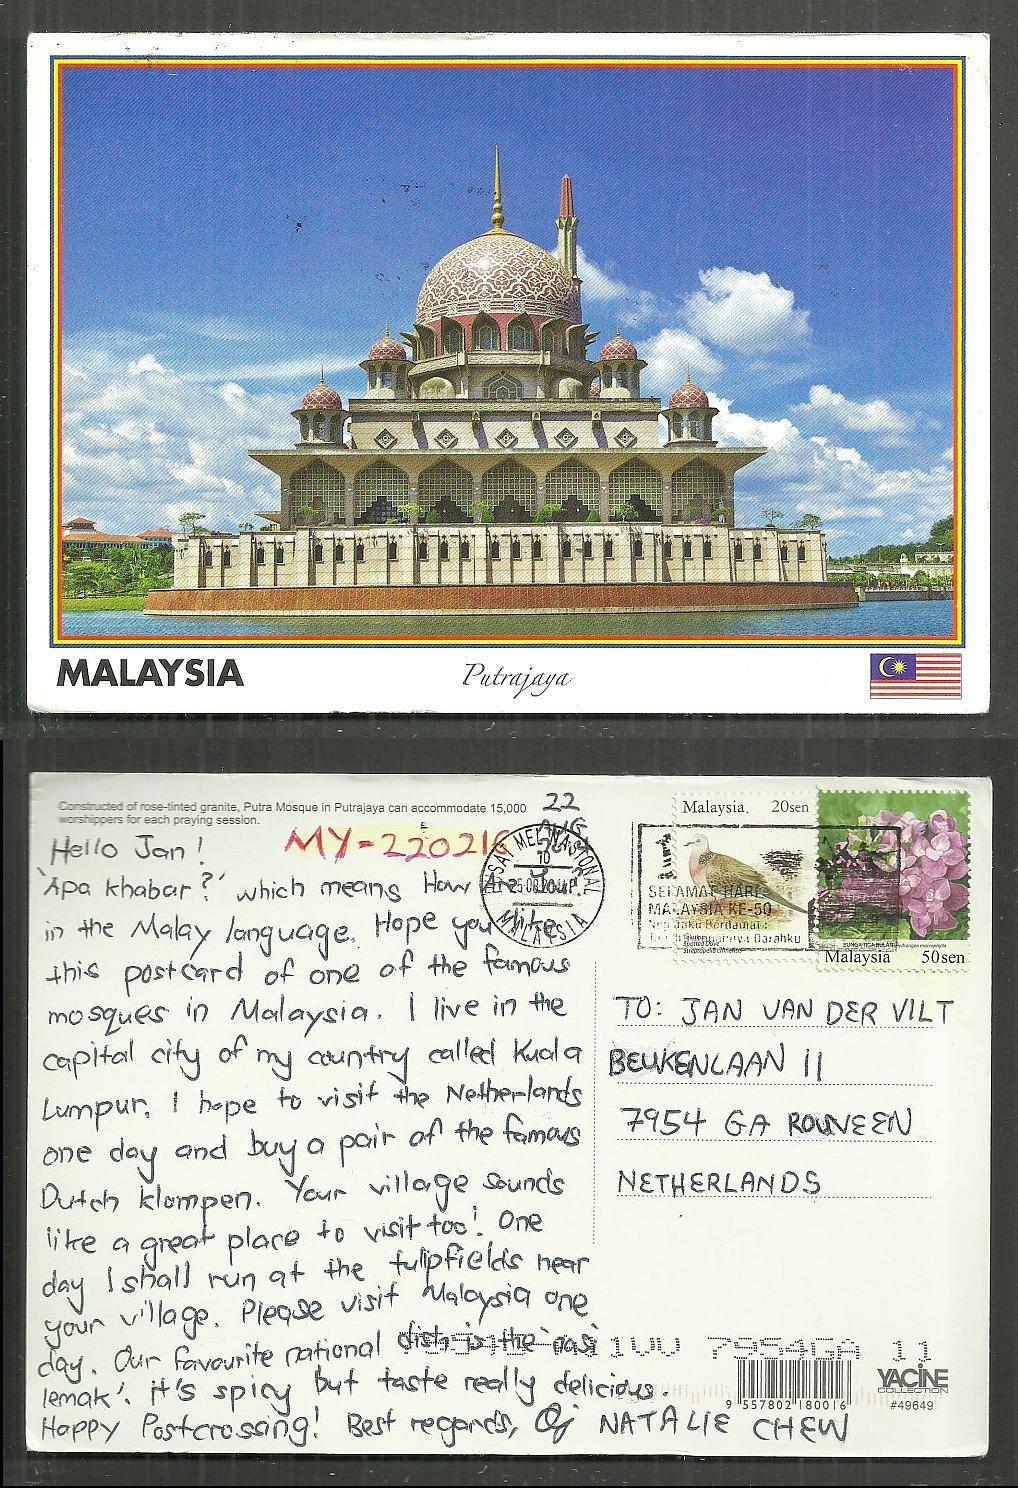 MALAYSIA
Putrajaya
Constructed of rose-tinted granite, Putra Mosque in Putrajaya can accommodate 15,000
worshippers for each praying session.
MY-220216
22
AUG
Hello Jan!
'Apa khabar?' which means How are you?
in the Malay language. Hope you like
this postcard of one of the famous
mosques in Malaysia. I live in the
capital city of my country called Kuala
Lumpur. I hope to visit the Netherlands
one day and buy a pair of the famous
Dutch klompen. Your village sounds
like a great place to visit too! One
day I shall run at the tulipfields near
your village. Please visit Malaysia one
day. Our favourite national dish is the 'nasi
lemak'. it's spicy but taste really delicious.
Happy Postcrossing! Best regards, NATALIE CHEW
MEL NASIONAL
10
MALAYSIA
SELAMAT HARI
MALAYSIA KE-50
Malaysia 20sen
Spotted Dove
Malaysia 50sen
TO: JAN VAN DER VILT
BEUKENLAAN 11
7954 GA ROUVEEN
NETHERLANDS
7954GA 11
9 557802 180016
YACINE
COLLECTION
#49649